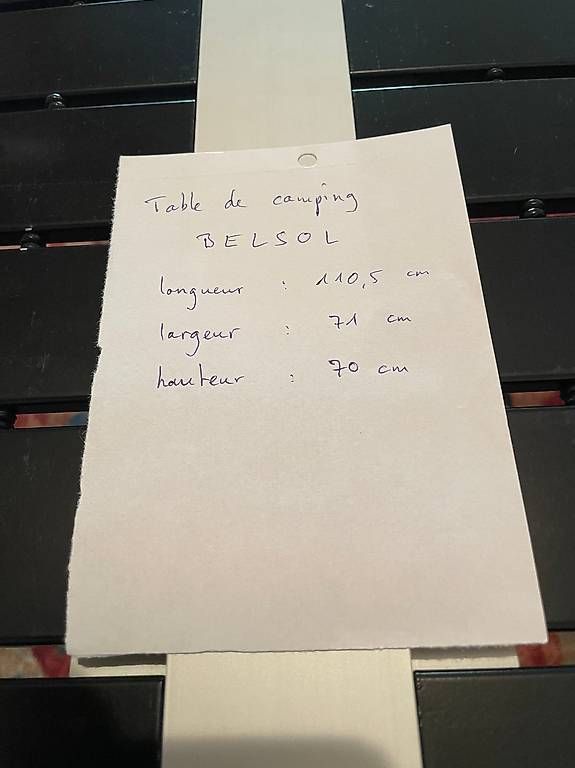 Table de camping
BELSOL
longueur : 110,5 cm
largeur : 71 cm
hauteur : 70 cm